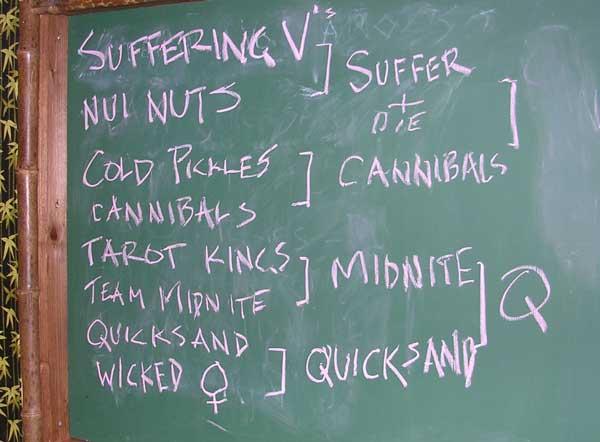 SUFFERING V's
NUI NUTS
COLD PICKLES
CANNIBALS
TAROT KINGS
TEAM MIDNITE
QUICKSAND
WICKED ♀
SUFFER
+
DIE
CANNIBALS
MIDNITE
QUICKSAND
Q